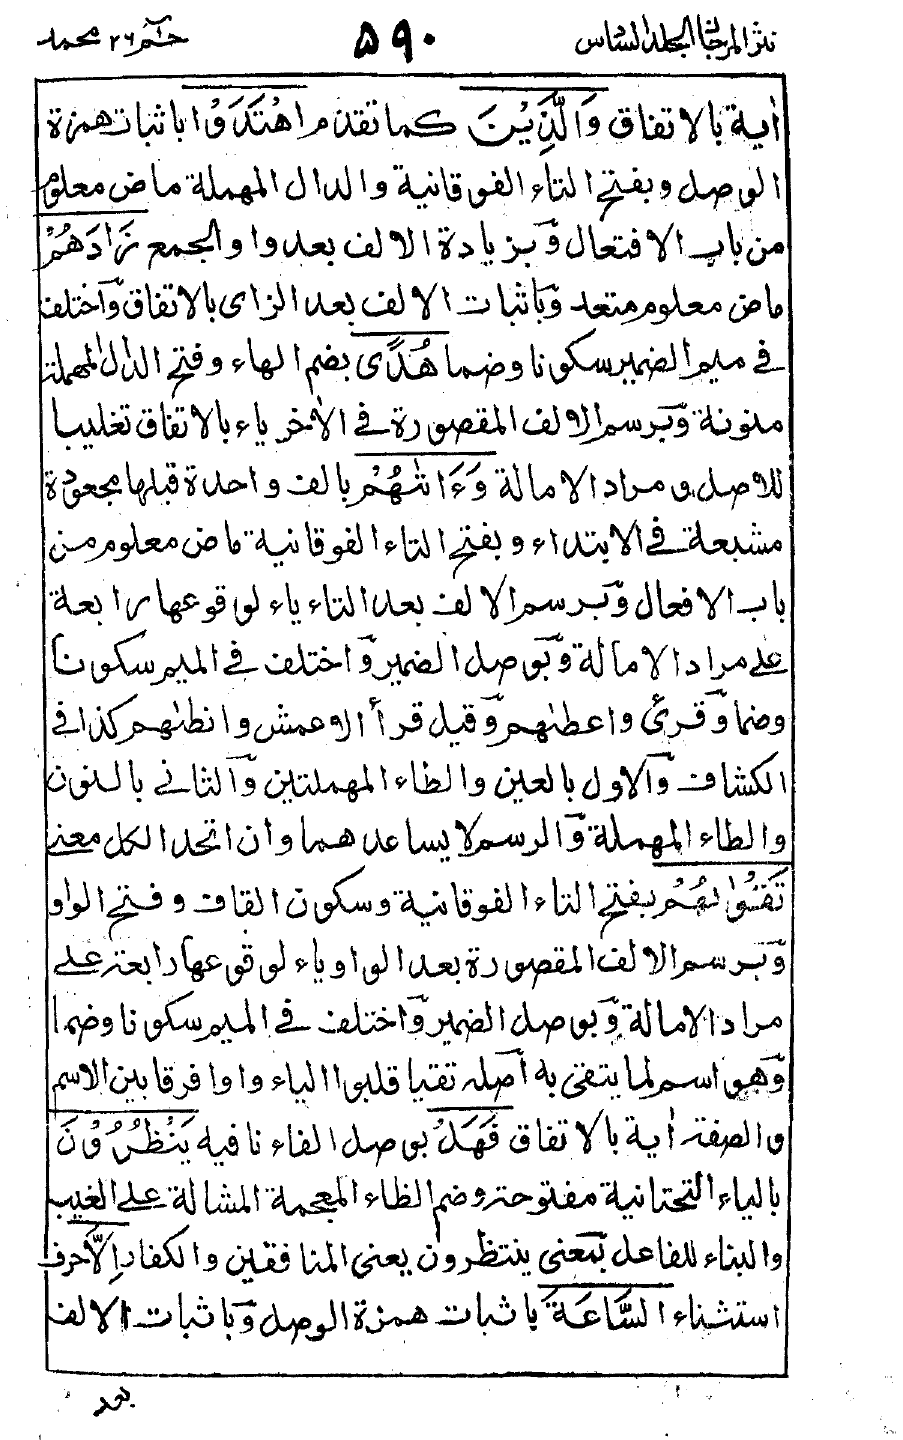 نثر المرجان الجلد السادس ۵۹۰ حٰم ۲۶ محمد
اٰية بالاتفاق وَالَّذِيْنَ كما تقدم اهْتَدَوْا باثبات همزة
الوصل وبفتح التاء الفوقانية والدال المهملة ماض معلوم
من باب الافتعال وبزيادة الالف بعد واو الجمع زَادَهُمْ
ماض معلوم متعد وباثبات الالف بعد الزاى بالاتفاق واختلف
فى ميم الضمير سكونا وضما هُدًى بضم الهاء وفتح الدال المهملة
منونة وبرسم الالف المقصورة فى الاٰخر ياء بالاتفاق تغليبا
للاصل و مراد الامالة وَءَاتٰىهُمْ بالف واحدة قبلها مجعودة
مشبعة فى الابتداء وبفتح التاء الفوقانية ماض معلوم من
باب الافعال وبرسم الالف بعد التاء ياء لوقوعها رابعة
على مراد الامالة وبوصل الضمير واختلف فى الميم سكونا
وضما وقرئ واعطٰىهم وقيل قرأ الاعمش وانطٰىهم كذا فى
الكشاف والاول بالعين والطاء المهملتين والثانى بالنون
والطاء المهملة والرسم لا يساعدهما وان اتحد الكل معنى
تَقْوٰىهُمْ بفتح التاء الفوقانية وسكون القاف وفتح الواو
وبرسم الالف المقصورة بعد الواو ياء لوقوعها رابعة على
مراد الامالة وبوصل الضمير واختلف فى الميم سكونا وضما
وهو اسم لما يتقى به اصله تقيا قلبوا الياء واوا فرقا بين الاسم
والصفة اٰية بالاتفاق فَهَلْ بوصل الفاء نافية يَنْظُرُوْنَ
بالياء التحتانية مفتوحة وضم الظاء المعجمة المشالة على الغيب
والبناء للفاعل بمعنى ينتظرون يعنى المنافقين والكفار اِلَّا حرف
استثناء السَّاعَةَ باثبات همزة الوصل وباثبات الالف
بعد